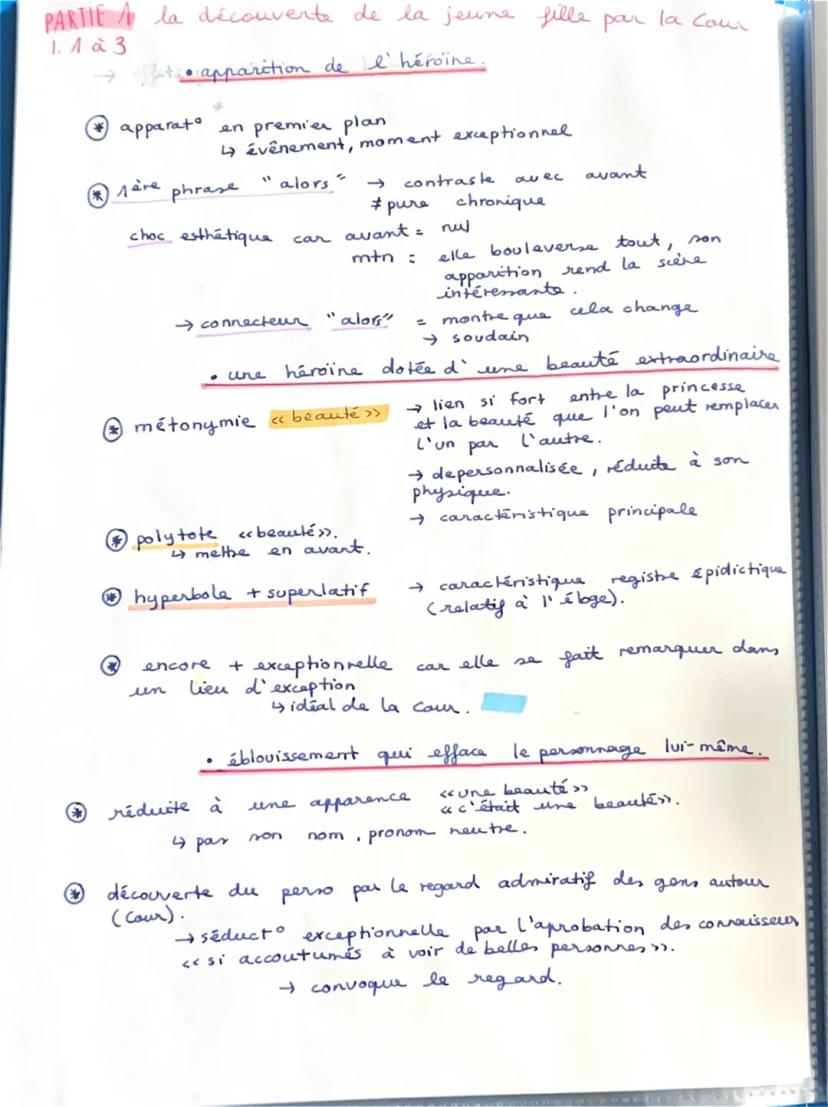 PARTIE 1 la découverte de la jeune fille par la Cour
l. 1 à 3
→ • apparition de l'héroïne.
* apparat° en premier plan
↳ évênement, moment exceptionnel
* 1ère phrase "alors" → contraste avec avant
≠ pure chronique
choc esthétique car avant = nul
mtn : elle bouleverse tout, son
apparition rend la scène
intéressante.
→ connecteur "alors" = montre que cela change
→ soudain
• une héroïne dotée d'une beauté extraordinaire
* métonymie «beauté» → lien si fort entre la princesse
et la beauté que l'on peut remplacer
l'un par l'autre.
→ depersonnalisée, réduite à son
physique.
→ caractéristique principale
* polytote «beauté».
↳ mettre en avant.
* hyperbole + superlatif → caractéristique registre épidictique
(relatif à l'éloge).
* encore + exceptionnelle car elle se fait remarquer dans
un lieu d'exception
↳ idéal de la Cour.
• éblouissement qui efface le personnage lui-même.
* réduite à une apparence «une beauté»
«c'était une beauté».
↳ pas son nom, pronom neutre.
* découverte du perso par le regard admiratif des gens autour
(Cour).
→ séduct° exceptionnelle par l'aprobation des connaisseurs
«si accoutumés à voir de belles personnes».
→ convoque le regard.